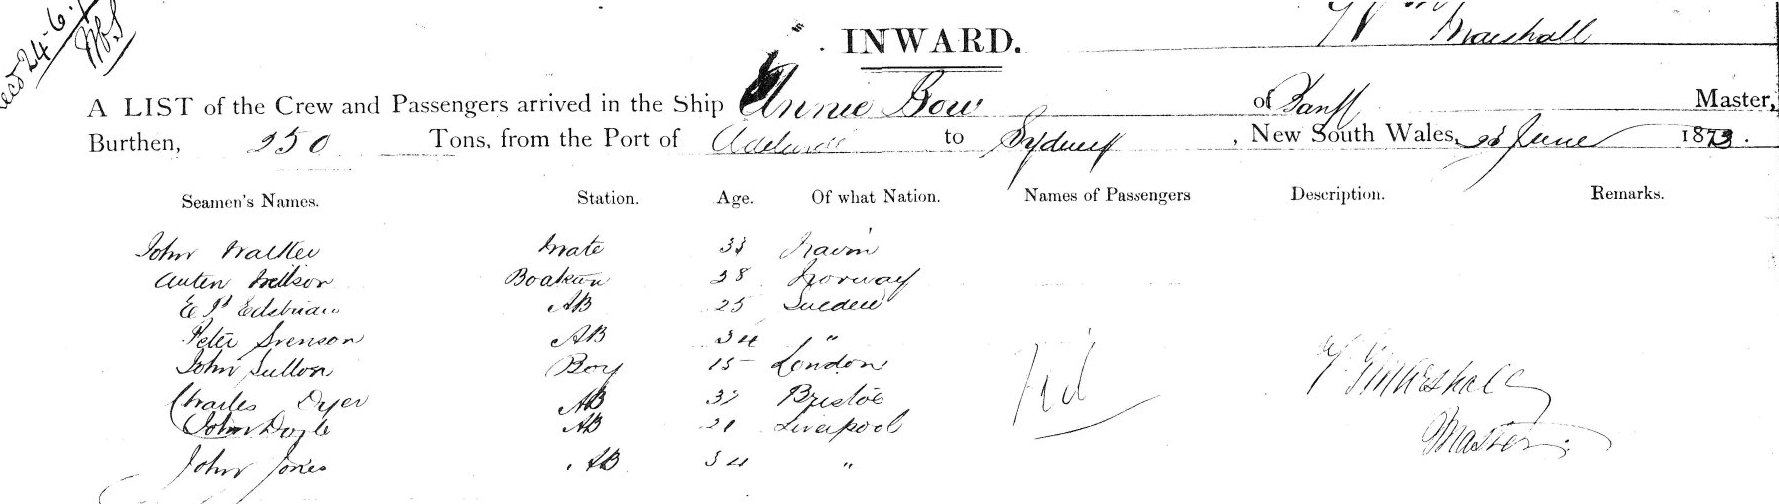 24-6
INWARD.
Wm Marshall
A LIST of the Crew and Passengers arrived in the Ship Annie Gow of Banff Master,
Burthen, 250 Tons, from the Port of Adelaide to Sydney, New South Wales, 23 June 1873.
Seamen's Names. Station. Age. Of what Nation. Names of Passengers Description. Remarks.
John Walker Mate 33
Anten Nillson Boatswn 28 Norway
AB 25 Sweden
Peter Svenson AB 34 "
John Sutton Boy 15 London
Charles Dyer AB 32 Bristol
John Doyle AB 21 Liverpool
John Jones AB 34 "
Nil
W Marshall
Master